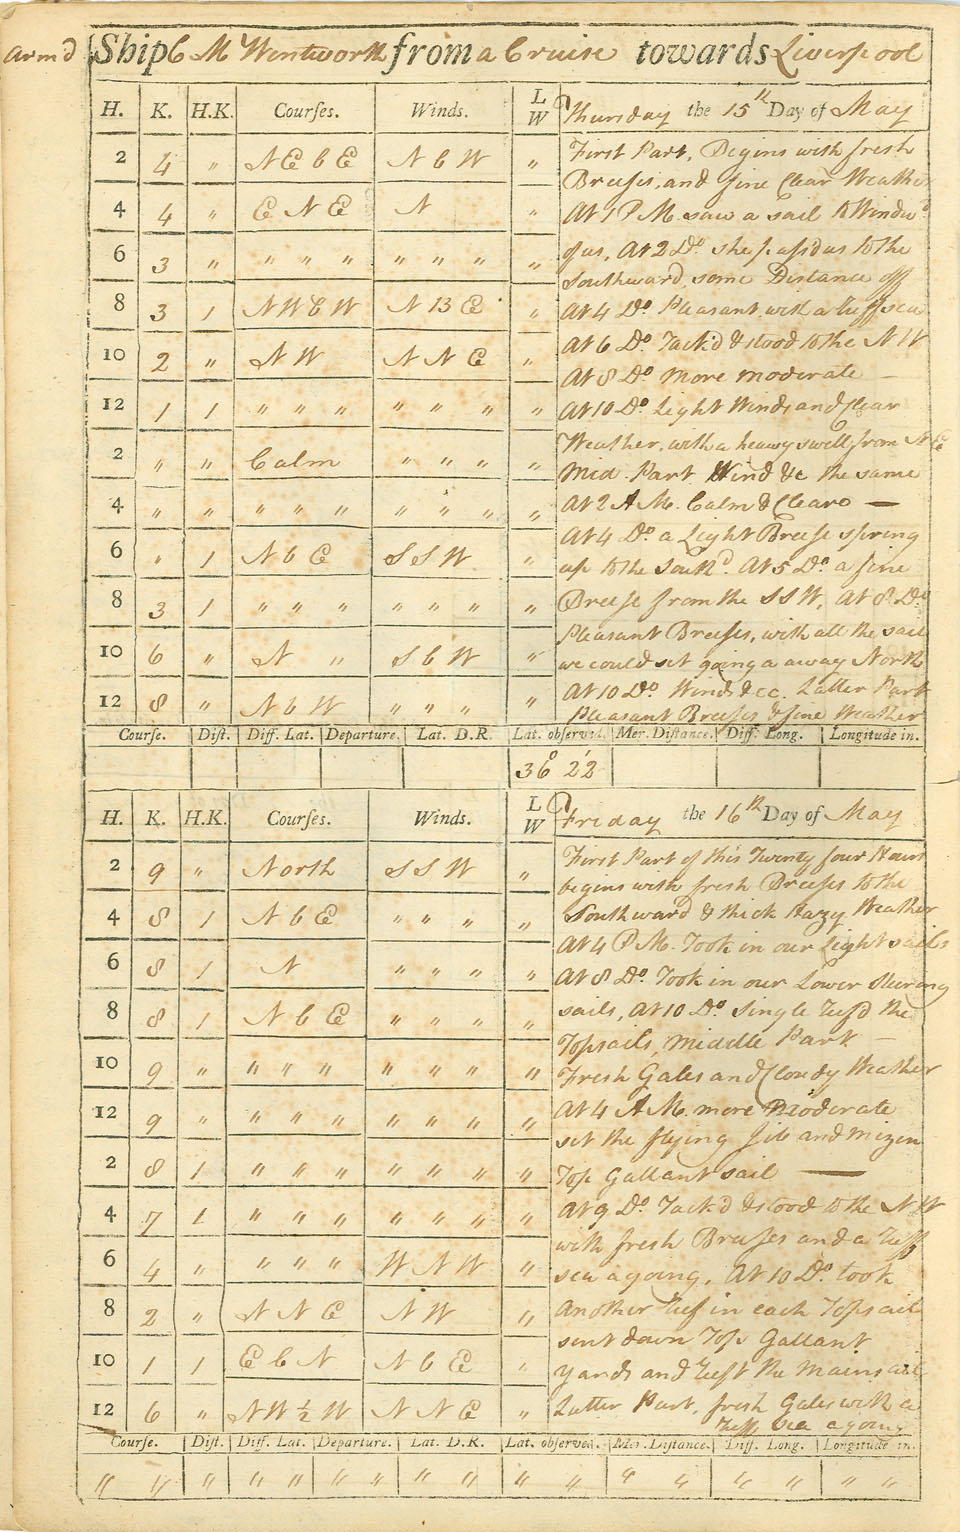 Arm'd Ship C M Wentworth from a Cruise towards Liverpool
H. K. H.K. Courses. Winds. L W Thursday the 15th Day of May
2 4 " N E b E N b W "
4 4 " E N E N "
6 3 " " " " " " " "
8 3 1 N W b W N B E "
10 2 " N W N N E "
12 1 1 " " " " " " "
2 " " Calm " " " "
4 " " " " " " " " "
6 " 1 N b E S S W "
8 3 1 " " " " " " "
10 6 " N " S b W "
12 8 " N b W " " " "
First Part, Begins with fresh
Breeses, and fine Clear Weather
At 1 P M. saw a sail to Windwd
of us, At 2 Do she pass'd us to the
Southward some Distance off
At 4 Do Pleasant with a Ruff sea
At 6 Do Tack'd & stood to the N W
At 8 Do more moderate —
At 10 Do Light Winds and Clear
Weather, with a heavy swell from N E
Mid Part Wind &c the same
At 2 A M. Calm & Clear —
At 4 Do a Light Breese spring
up to the Southd. At 5 Do a fine
Breese from the S S W, At 8 Do
Pleasant Breeses, with all the sail
we could set going a away North
At 10 Do Winds &cc. Latter Part
Pleasant Breeses & fine Weather
Course. Dist. Diff. Lat. Departure. Lat. D.R. Lat. observed. Mer. Distance. Diff. Long. Longitude in.
36° 22'
H. K. H.K. Courses. Winds. L W Friday the 16th Day of May
2 9 " North S S W "
4 8 1 N b E " " " "
6 8 1 N " " " "
8 8 1 N b E " " " "
10 9 " " " " " " " "
12 9 " " " " " " " "
2 8 1 " " " " " " "
4 7 1 " " " " " " "
6 4 " " " " W N W "
8 2 " N N E N W "
10 1 1 E b N N b E "
12 6 " N W ½ W N N E "
First Part of this Twenty four Hours
begins with fresh Breeses to the
Southward & thick Hazy Weather
At 4 P M. Took in our Light sails
At 8 Do Took in our Lower Steering
sails, At 10 Do Single Reef'd the
Topsails, Middle Part —
Fresh Gales and Cloudy Weather
At 4 A M. more Moderate
set the flying Jib and Mizen
Top Gallant sail —
At 9 Do Tack'd & stood to the N W
with fresh Breeses and a Ruff
sea agoing, At 10 Do took
Another Reef in each Topsail
sent down Top Gallant
Yards and Reeft the Mainsail
Latter Part, fresh Gales with a
Ruff sea agoing
Course. Dist. Diff. Lat. Departure. Lat. D.R. Lat. observed. Mer. Distance. Diff. Long. Longitude in.
" " " " " " " " " " " " " " " " " "